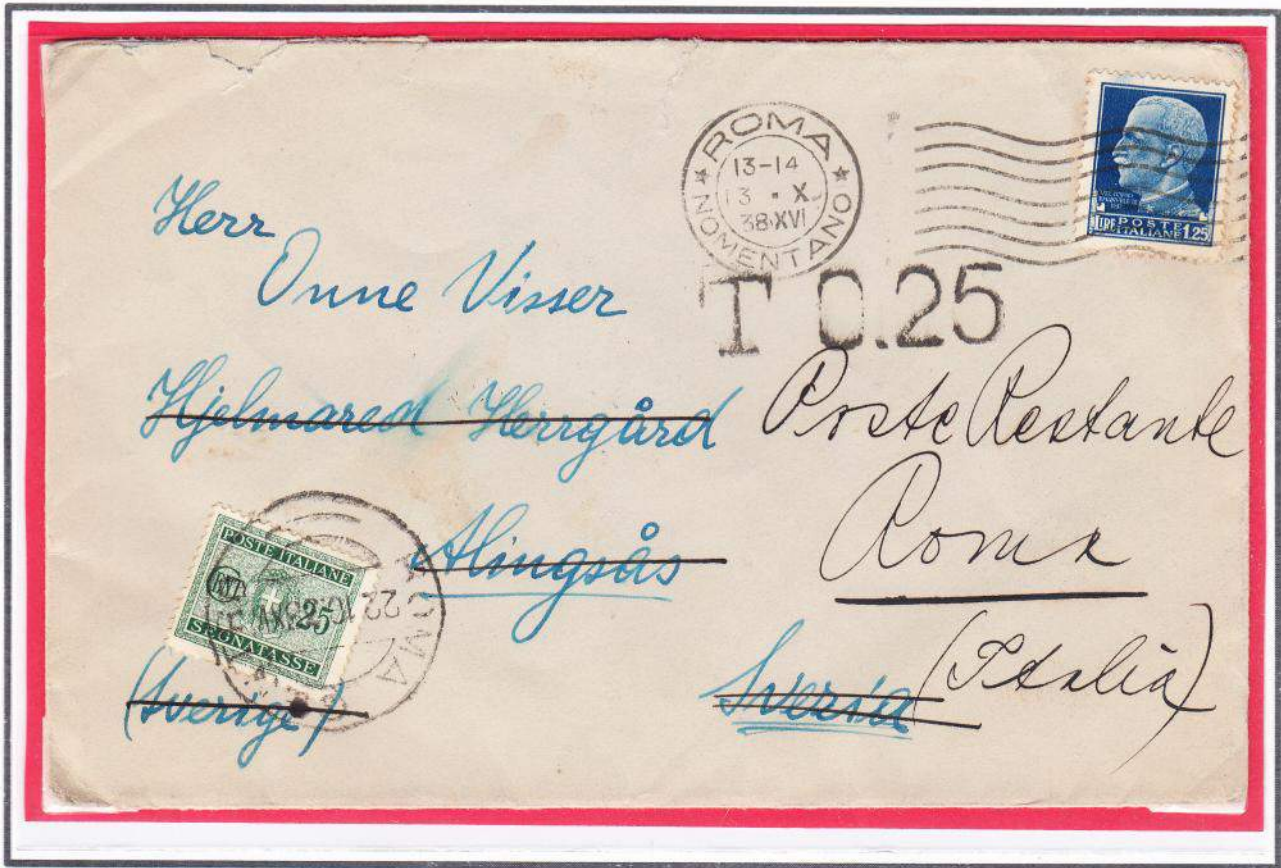 ROMA
NOMENTANO
13-14
13 · X
38·XVI
LIRE POSTE ITALIANE 1.25
T 0.25
Herr
Onne Visser
Hjelmared Herrgård
Alingsås
(Sverige)
Svezia
Poste Restante
Roma
(Italia)
POSTE ITALIANE
CENT. 25
SEGNATASSE
ROMA
22.10